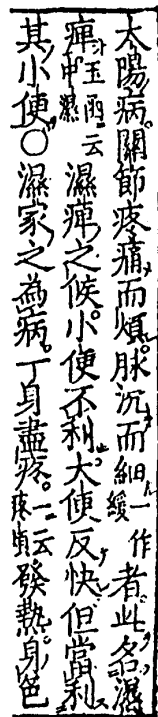 太陽病關節疼痛而煩脉沉而細一作緩者此名濕
痺玉函云中濕濕痺之候小便不利大便反快但當利
其小便○濕家之為病一身盡疼一云疼煩發熱身色